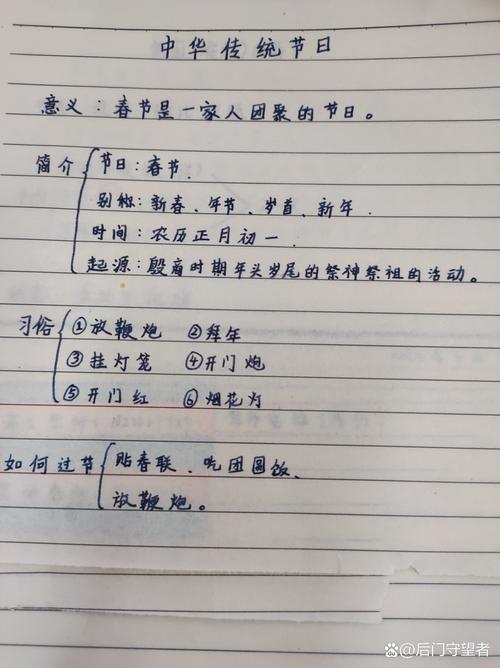 中华传统节日
意义：春节是一家人团聚的节日。
简介
节日：春节.
别称：新春、年节、岁首、新年.
时间：农历正月初一.
起源：殷商时期年头岁尾的祭神祭祖的活动。
习俗
①放鞭炮 ②拜年
③挂灯笼 ④开门炮
⑤开门红 ⑥烟花灯
如何过节
贴春联、吃团圆饭、
放鞭炮。
@后门守望者